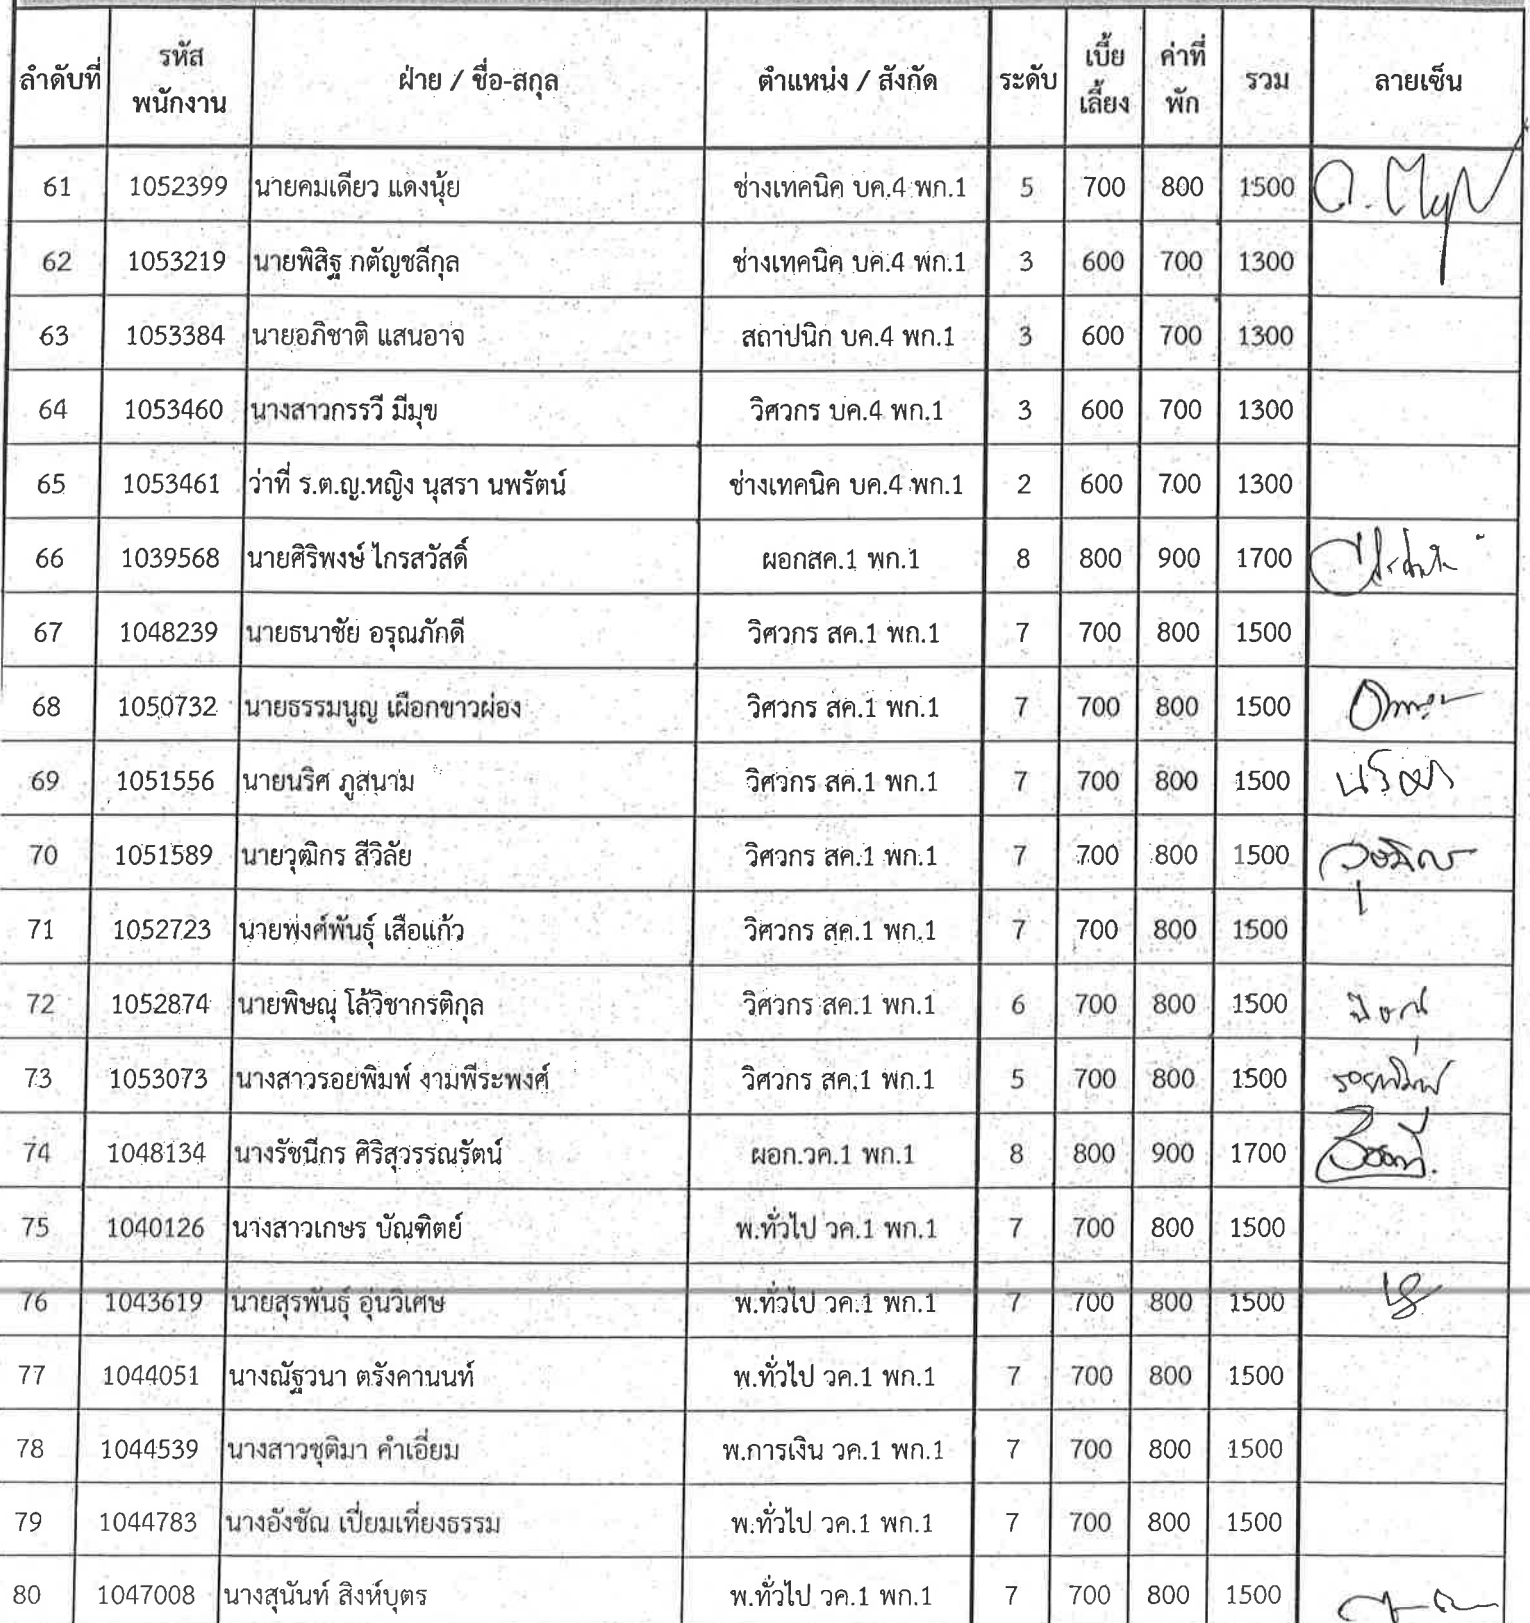 ลำดับที่ รหัสพนักงาน ฝ่าย / ชื่อ-สกุล ตำแหน่ง / สังกัด ระดับ เบี้ยเลี้ยง ค่าที่พัก รวม ลายเซ็น
61 1052399 นายคมเดียว แดงนุ้ย ช่างเทคนิค บค.4 พก.1 5 700 800 1500
62 1053219 นายพิสิฐ กตัญชลีกุล ช่างเทคนิค บค.4 พก.1 3 600 700 1300
63 1053384 นายอภิชาติ แสนอาจ สถาปนิก บค.4 พก.1 3 600 700 1300
64 1053460 นางสาวกรรวี มีมุข วิศวกร บค.4 พก.1 3 600 700 1300
65 1053461 ว่าที่ ร.ต.ญ.หญิง นุสรา นพรัตน์ ช่างเทคนิค บค.4 พก.1 2 600 700 1300
66 1039568 นายศิริพงษ์ ไกรสวัสดิ์ ผอกสค.1 พก.1 8 800 900 1700
67 1048239 นายธนาชัย อรุณภักดี วิศวกร สค.1 พก.1 7 700 800 1500
68 1050732 นายธรรมนูญ เผือกขาวผ่อง วิศวกร สค.1 พก.1 7 700 800 1500
69 1051556 นายนริศ ภูสนาม วิศวกร สค.1 พก.1 7 700 800 1500 นริศ
70 1051589 นายวุฒิกร สีวิลัย วิศวกร สค.1 พก.1 7 700 800 1500 วุฒิกร
71 1052723 นายพงศ์พันธุ์ เสือแก้ว วิศวกร สค.1 พก.1 7 700 800 1500
72 1052874 นายพิษณุ โล้วิชากรติกุล วิศวกร สค.1 พก.1 6 700 800 1500 พิษณุ
73 1053073 นางสาวรอยพิมพ์ งามพีระพงศ์ วิศวกร สค.1 พก.1 5 700 800 1500 รอยพิมพ์
74 1048134 นางรัชนีกร ศิริสุวรรณรัตน์ ผอก.วค.1 พก.1 8 800 900 1700
75 1040126 นางสาวเกษร บัณฑิตย์ พ.ทั่วไป วค.1 พก.1 7 700 800 1500
76 1043619 นายสุรพันธุ์ อุ่นวิเศษ พ.ทั่วไป วค.1 พก.1 7 700 800 1500
77 1044051 นางณัฐวนา ตรังคานนท์ พ.ทั่วไป วค.1 พก.1 7 700 800 1500
78 1044539 นางสาวชุติมา คำเอี่ยม พ.การเงิน วค.1 พก.1 7 700 800 1500
79 1044783 นางอังชัณ เปี่ยมเที่ยงธรรม พ.ทั่วไป วค.1 พก.1 7 700 800 1500
80 1047008 นางสุนันท์ สิงห์บุตร พ.ทั่วไป วค.1 พก.1 7 700 800 1500